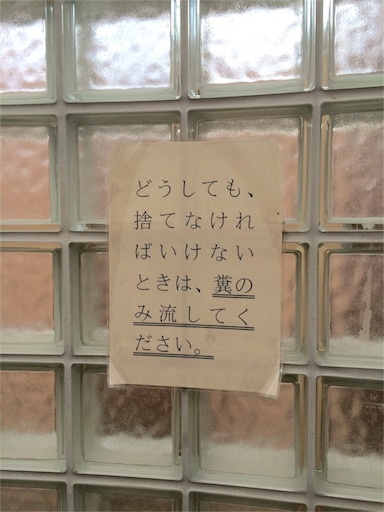 どうしても、
捨てなけれ
ばいけない
ときは、糞の
み流してく
ださい。